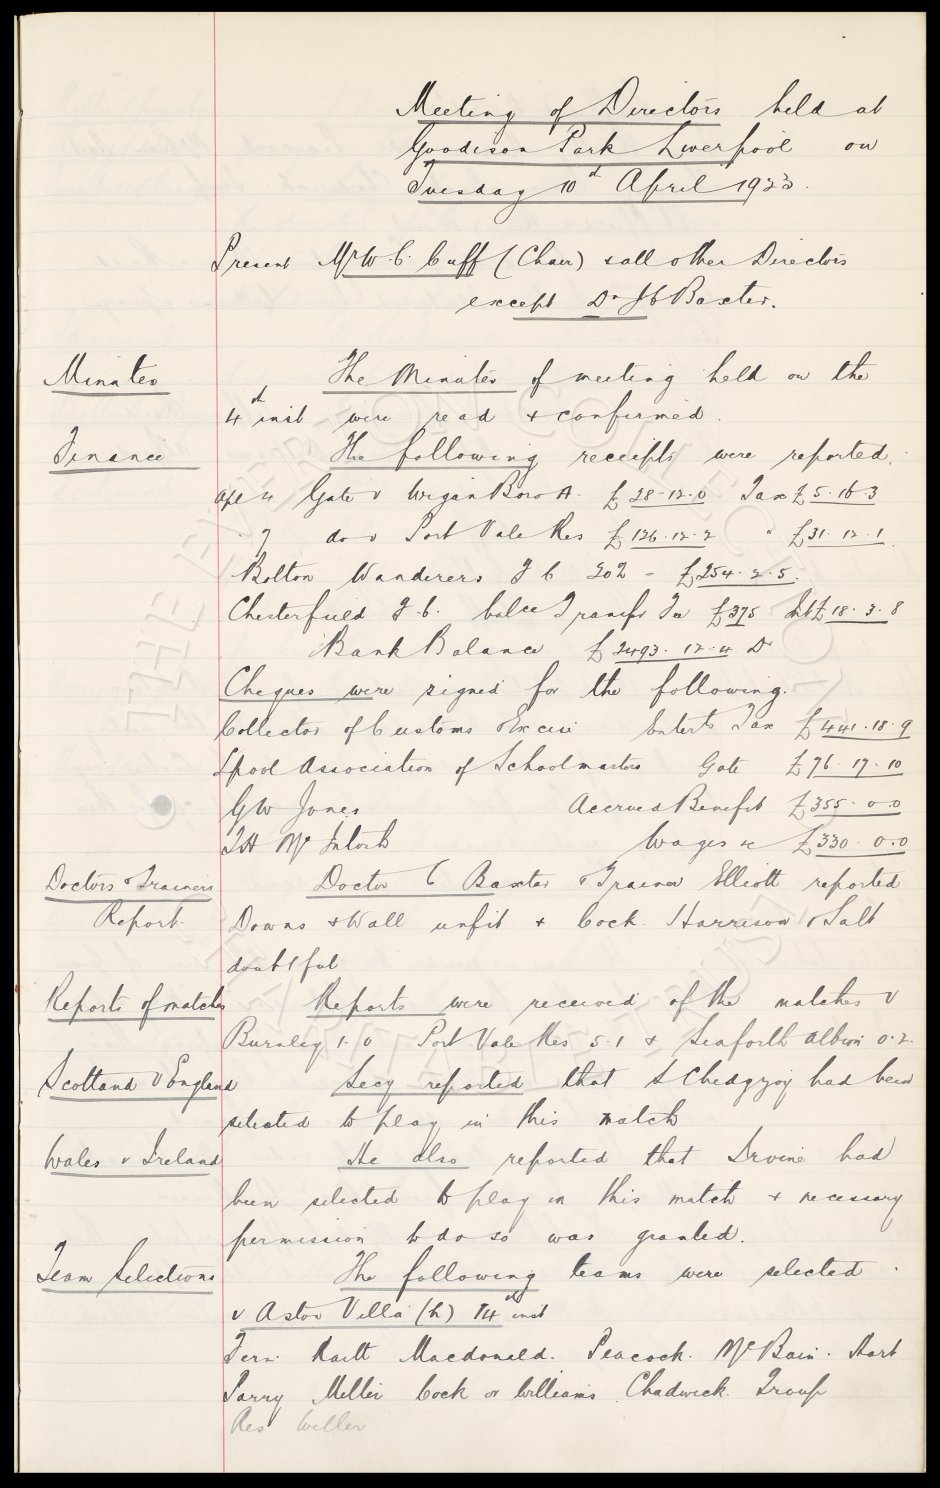 Meeting of Directors held at
Goodison Park Liverpool on
Tuesday 10th April 1923.
Present Mr W. C. Cuff (Chair) & all other Directors
except Dr J C Baxter.
Minutes The Minutes of meeting held on the
4th inst were read & confirmed.
Finance The following receipts were reported.
Apl 4 Gate v Wigan Boro A. £28.12.0 Tax £5.16.3
7 do v Port Vale Res £126.12.2 " £31.12.1
Bolton Wanderers F C 20% - £254.2.5.
Chesterfield F.C. balce Transfr Fee £375 Int £18.3.8
Bank Balance £2493.12.4 Dr
Cheques were signed for the following.
Collector of Customs & Excise Enterts Tax £441.18.9
Lpool Association of Schoolmasters Gate £76.17.10
G W Jones Accrued Benefit £355.0.0
T H McIntosh Wages &c £330.0.0
Doctors & Trainers Doctor C Baxter & Trainer Elliott reported
Report. Downs & Wall unfit & Cock. Harrison & Salt
doubtful
Reports of matches Reports were received of the matches v
Burnley 1.0 Port Vale Res 5.1 & Seaforth Albion 0.2.
Scotland v England Secy reported that S Chedgzoy had been
selected to play in this match
Wales v Ireland He also reported that Irvine had
been selected to play in this match & necessary
permission to do so was granted.
Team Selections The following teams were selected.
v Aston Villa (h) 14th inst
Fern. Raitt Macdonald. Peacock. McBain. Hart
Parry Miller Cock or Williams Chadwick. Troup
Res Weller
THE EVERTON COLLECTION